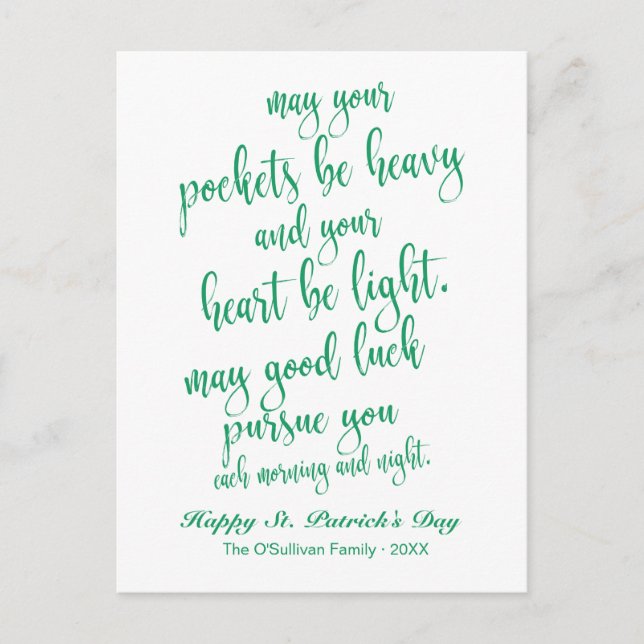 may your
pockets be heavy
and your
heart be light.
may good luck
pursue you
each morning and night.
Happy St. Patrick's Day
The O'Sullivan Family · 20XX